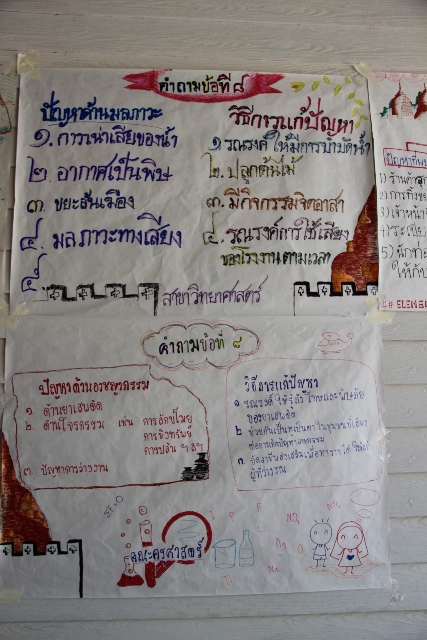 คำถามข้อที่ ๘
ปัญหาด้านมลภาวะ
๑. การเน่าเสียของน้ำ
๒. อากาศเป็นพิษ
๓. ขยะล้นเมือง
๔. มลภาวะทางเสียง
๕
วิธีการแก้ปัญหา
๑. รณรงค์ให้มีการบำบัดน้ำ
๒. ปลูกต้นไม้
๓. มีกิจกรรมจิตอาสา
๔. รณรงค์การใช้เสียง
ของโรงงานตามเวลา
สาขาวิทยาศาสตร์
คำถามข้อที่ ๘
ปัญหาด้านอาชญากรรม
๑ ด้านยาเสพติด
๒ ด้านโจรกรรม เช่น การลักขโมย
การชิงทรัพย์
การปล้น ฯลฯ
๓ ปัญหาการว่างงาน
วิธีการแก้ปัญหา
๑. รณรงค์ให้รู้ถึงโทษและพิษภัย
ของยาเสพติด
๒ ช่วยกันเป็นหูเป็นตา
ต่อการเกิดปัญหาอาชญากรรม
๓.
ผู้ที่ว่างงาน
คณะครุศาสตร์